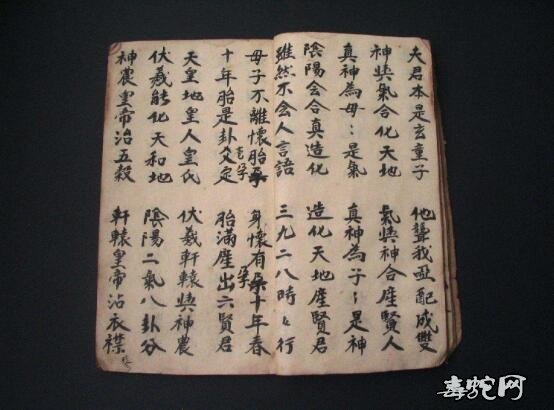 夫君本是玄童子 他聾我啞配成雙
神與氣合化天地 氣與神合產賢人
真神為母〻是氣 真神為子〻是神
陰陽会合真造化 造化天地產賢君
雖然不会人言語 三九二八時〻行
母子不離懷胎孕 身懷有孕十年春
十年胎是卦爻定 胎滿產出六賢君
天皇地皇人皇氏 伏羲軒轅與神農
伏羲能化天和地 陰陽二氣八卦分
神農皇帝治五穀 軒轅皇帝沾衣襟
毒蛇网